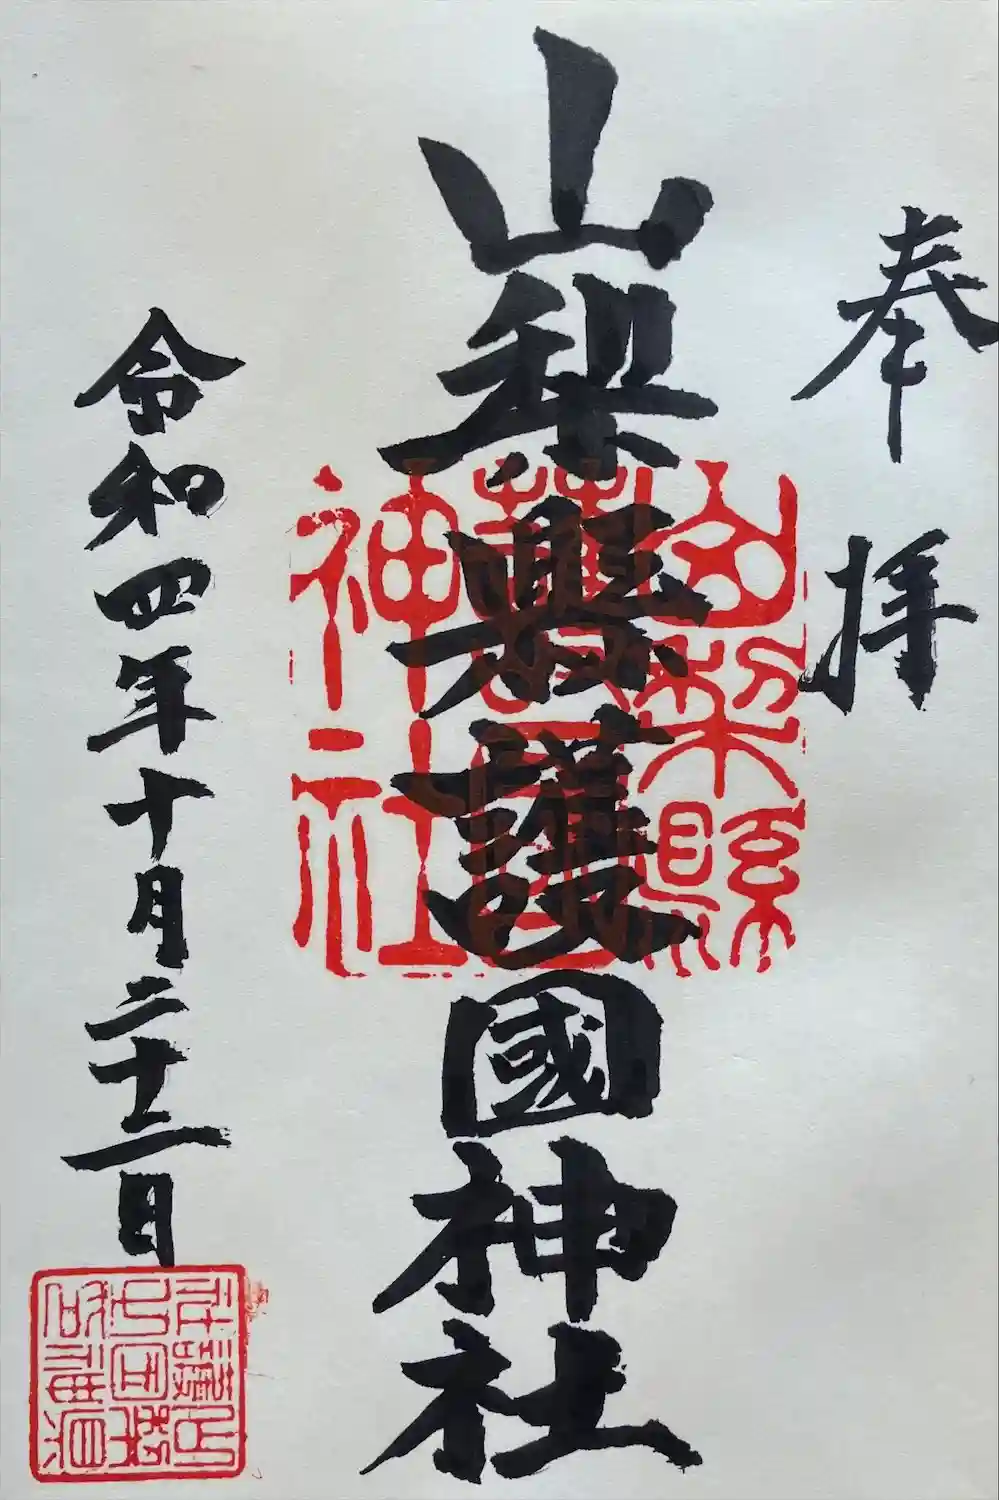 奉拝
山梨縣護國神社
山梨縣
護國
神社
令和四年十月二十二日